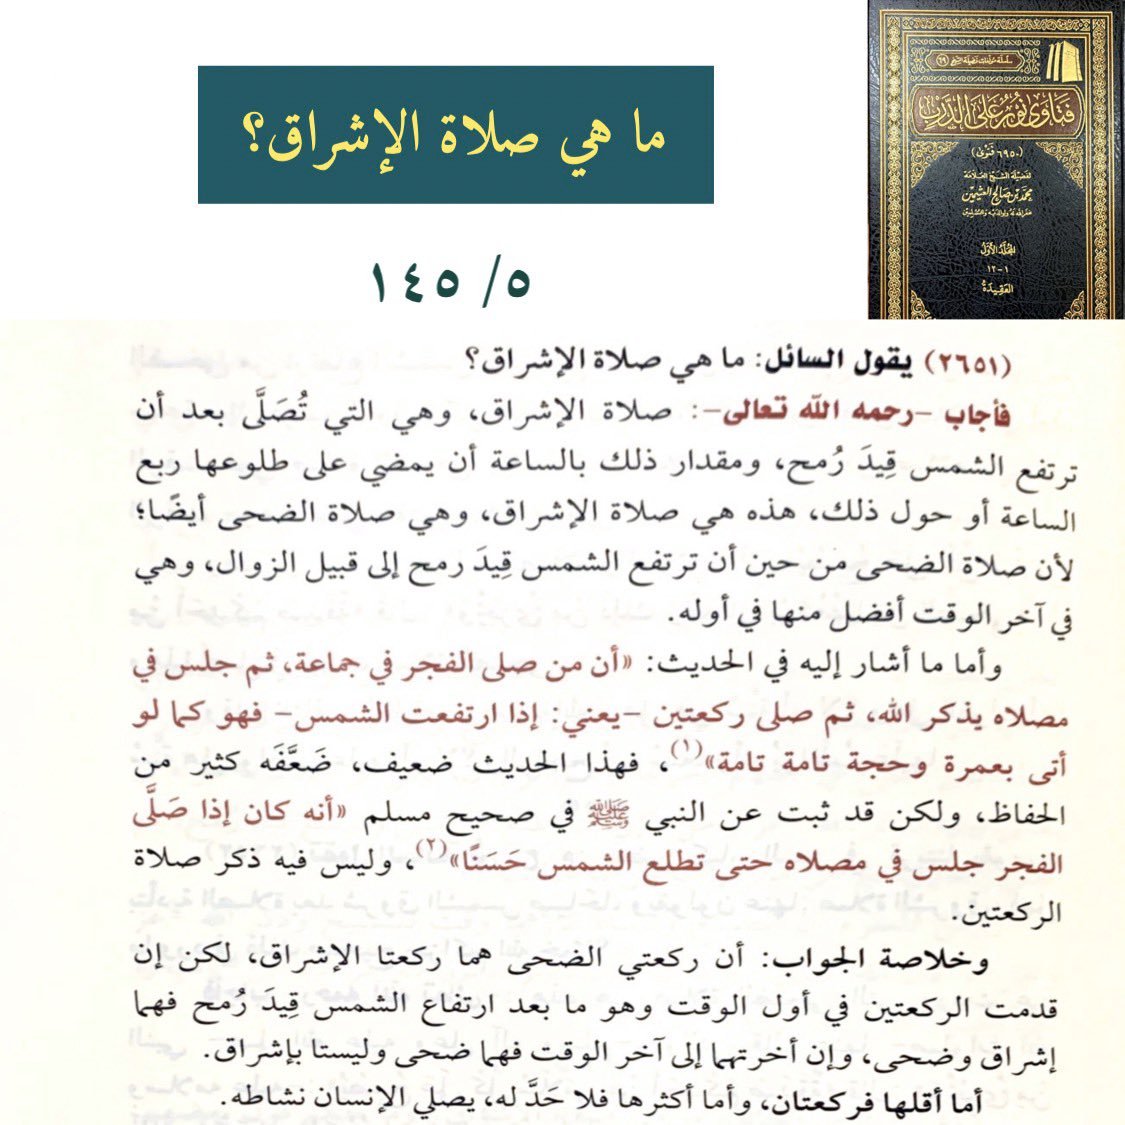 ما هي صلاة الإشراق؟
٥/ ١٤٥
سلسلة مؤلفات فضيلة الشيخ (٦٩)
فتاوى نور على الدرب
(٦٩٥٠ فتوى)
لفضيلة الشيخ العلامة
محمد بن صالح العثيمين
غفر الله له ولوالديه وللمسلمين
المجلد الأول
١-١٢
العقيدة
(٢٦٥١) يقول السائل: ما هي صلاة الإشراق؟
فأجاب -رحمه الله تعالى-: صلاة الإشراق، وهي التي تُصَلَّى بعد أن
ترتفع الشمس قِيدَ رُمح، ومقدار ذلك بالساعة أن يمضي على طلوعها ربع
الساعة أو حول ذلك، هذه هي صلاة الإشراق، وهي صلاة الضحى أيضًا؛
لأن صلاة الضحى من حين أن ترتفع الشمس قِيدَ رمح إلى قبيل الزوال، وهي
في آخر الوقت أفضل منها في أوله.
وأما ما أشار إليه في الحديث: «أن من صلى الفجر في جماعة، ثم جلس في
مصلاه يذكر الله، ثم صلى ركعتين -يعني: إذا ارتفعت الشمس- فهو كما لو
أتى بعمرة وحجة تامة تامة»(١)، فهذا الحديث ضعيف، ضَعَّفَه كثير من
الحفاظ، ولكن قد ثبت عن النبي ﷺ في صحيح مسلم «أنه كان إذا صَلَّى
الفجر جلس في مصلاه حتى تطلع الشمس حَسَنًا»(٢)، وليس فيه ذكر صلاة
الركعتين.
وخلاصة الجواب: أن ركعتي الضحى هما ركعتا الإشراق، لكن إن
قدمت الركعتين في أول الوقت وهو ما بعد ارتفاع الشمس قِيدَ رُمح فهما
إشراق وضحى، وإن أخرتهما إلى آخر الوقت فهما ضحى وليستا بإشراق.
أما أقلها فركعتان، وأما أكثرها فلا حَدَّ له، يصلي الإنسان نشاطه.